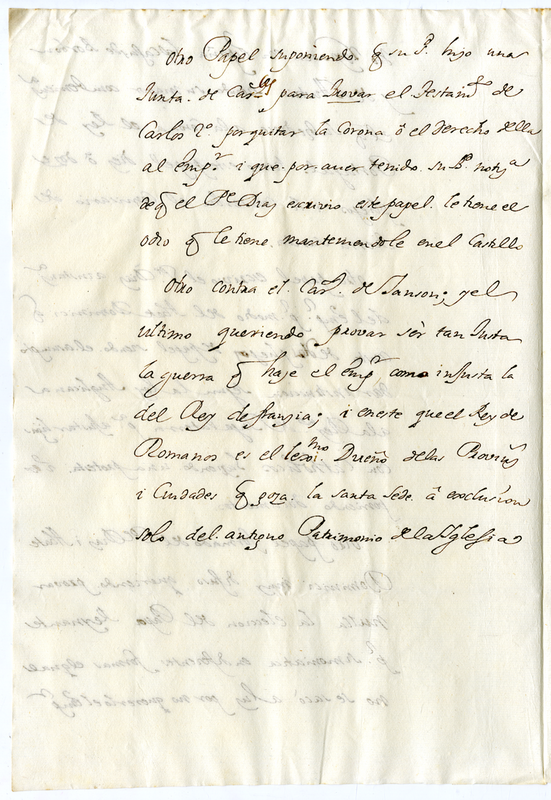 Otro Papel suponiendo q̃ su Sᵈ. hijo una
Junta. de Carˡᵉˢ para Provar el Testamᵗᵒ de
Carlos 2º por quitar la Corona ò el derecho della
al Empʳ. i que. por aver tenido. su Bᵈ notiᵃ
de q̃ el Pᵉ Dias escrivio este papel. le tiene el
odio q̃ le tiene. manteniendole en el Castillo
Otro contra el. Carˡ. de Janson; y el
ultimo queriendo. provar sèr tan Justa
la guerra q̃ haze el Empʳ como injusta la
del Rey de franzia; i en este que el Rey de
Romanos es el lexiᵐᵒ. Dueño de las Provinᵃˢ
i Ciudades q̃ goza. la santa Sede. â exclusion
solo del. antiguo Patrimonio de la Iglesia